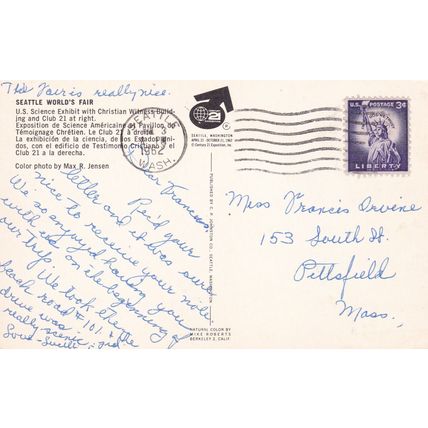 The Fair is really nice.
SEATTLE WORLD'S FAIR
U.S. Science Exhibit with Christian Witness Build-
ing and Club 21 at right.
Exposition de Science Américaine et Pavillon de
Témoignage Chrétien. Le Club 21 à droite.
La exhibición de la ciencia, de
dos, con el edificio de Testimonio Cristiano y el
Club 21 a la derecha.
Color photo by Max R. Jensen
Dear Frances,
Rec'd your
letter and it was sure
nice to receive your note.
We so enjoyed having you
with us on the beginning of
our trip.
We took the
beach road #101 & the
drive was
really scenic.
Love-
21
SEATTLE, WASHINGTON
APRIL 21 - OCTOBER 21, 1962
© Century 21 Exposition, Inc.
SEATTLE
1962
WASH.
PUBLISHED BY C. P. JOHNSTON CO. SEATTLE, WASHINGTON
NATURAL COLOR BY
MIKE ROBERTS
BERKELEY 2, CALIF.
U.S. POSTAGE 3¢
LIBERTY
Miss Francis Irvine
153 South St.
Pittsfield
Mass.